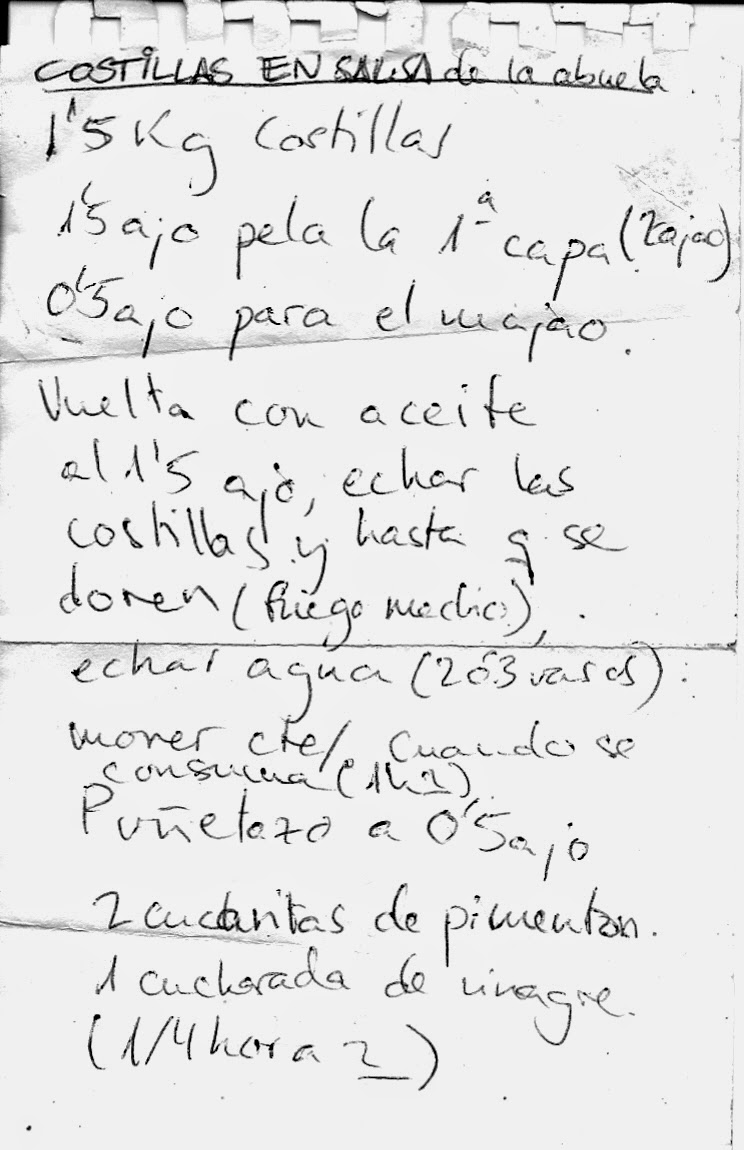 COSTILLAS EN SALSA de la abuela.
1'5 Kg Costillas
1'5 ajo pela la 1ª capa (2 ajao)
0'5 ajo para el majao.
Vuelta con aceite
al 1'5 ajo, echar las
costillas y hasta q se
doren (fuego medio),
echar agua (2ó3 vasos).
mover cte/. Cuando se
consuma (1h)
Puñetazo a 0'5 ajo
2 cucharitas de pimenton.
1 cucharada de vinagre.
(1/4 hora)